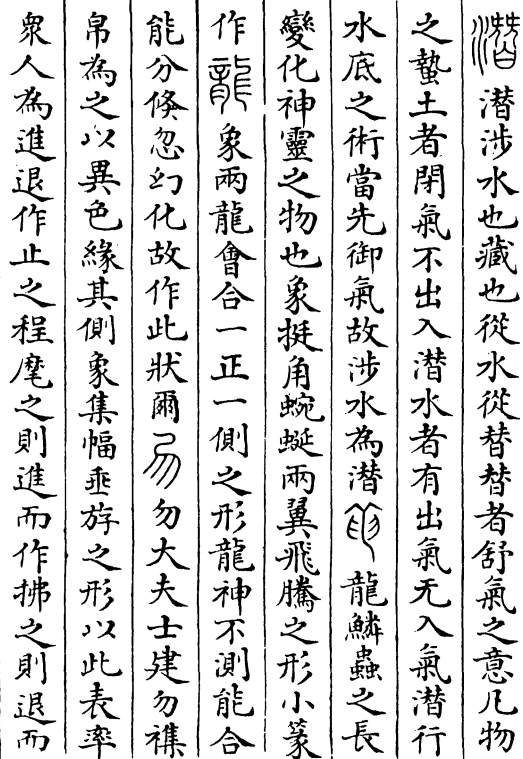 潛涉水也藏也從水從朁朁者舒氣之意凡物
之蟄土者閉氣不出入潜水者有出氣无入氣潜行
水底之術當先御氣故涉水為潜 龍鱗蟲之長
變化神靈之物也象挺角蜿蜒兩翼飛騰之形小篆
作龍象兩龍會合一正一側之形龍神不測能合
能分倐忽幻化故作此狀爾 勿大夫士建勿襍
帛為之以異色緣其側象集幅垂斿之形以此表率
衆人為進退作止之程麾之則進而作拂之則退而